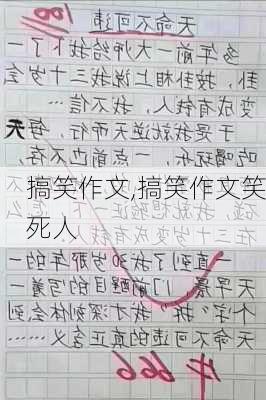 天命不可违
多年前一大师给我卜了一
卦,按卦相说我三十岁会
变成有钱人,我不信。
于是我就逆天而行,每天
吃喝玩乐,一点前也不存,
搞笑作文,搞笑作文笑
死人
一直到了我30岁那年的一
天早晨,门前醒目的写着一
个字"拆"我才深刻体会到
天命不可违的真正含义……
牛666